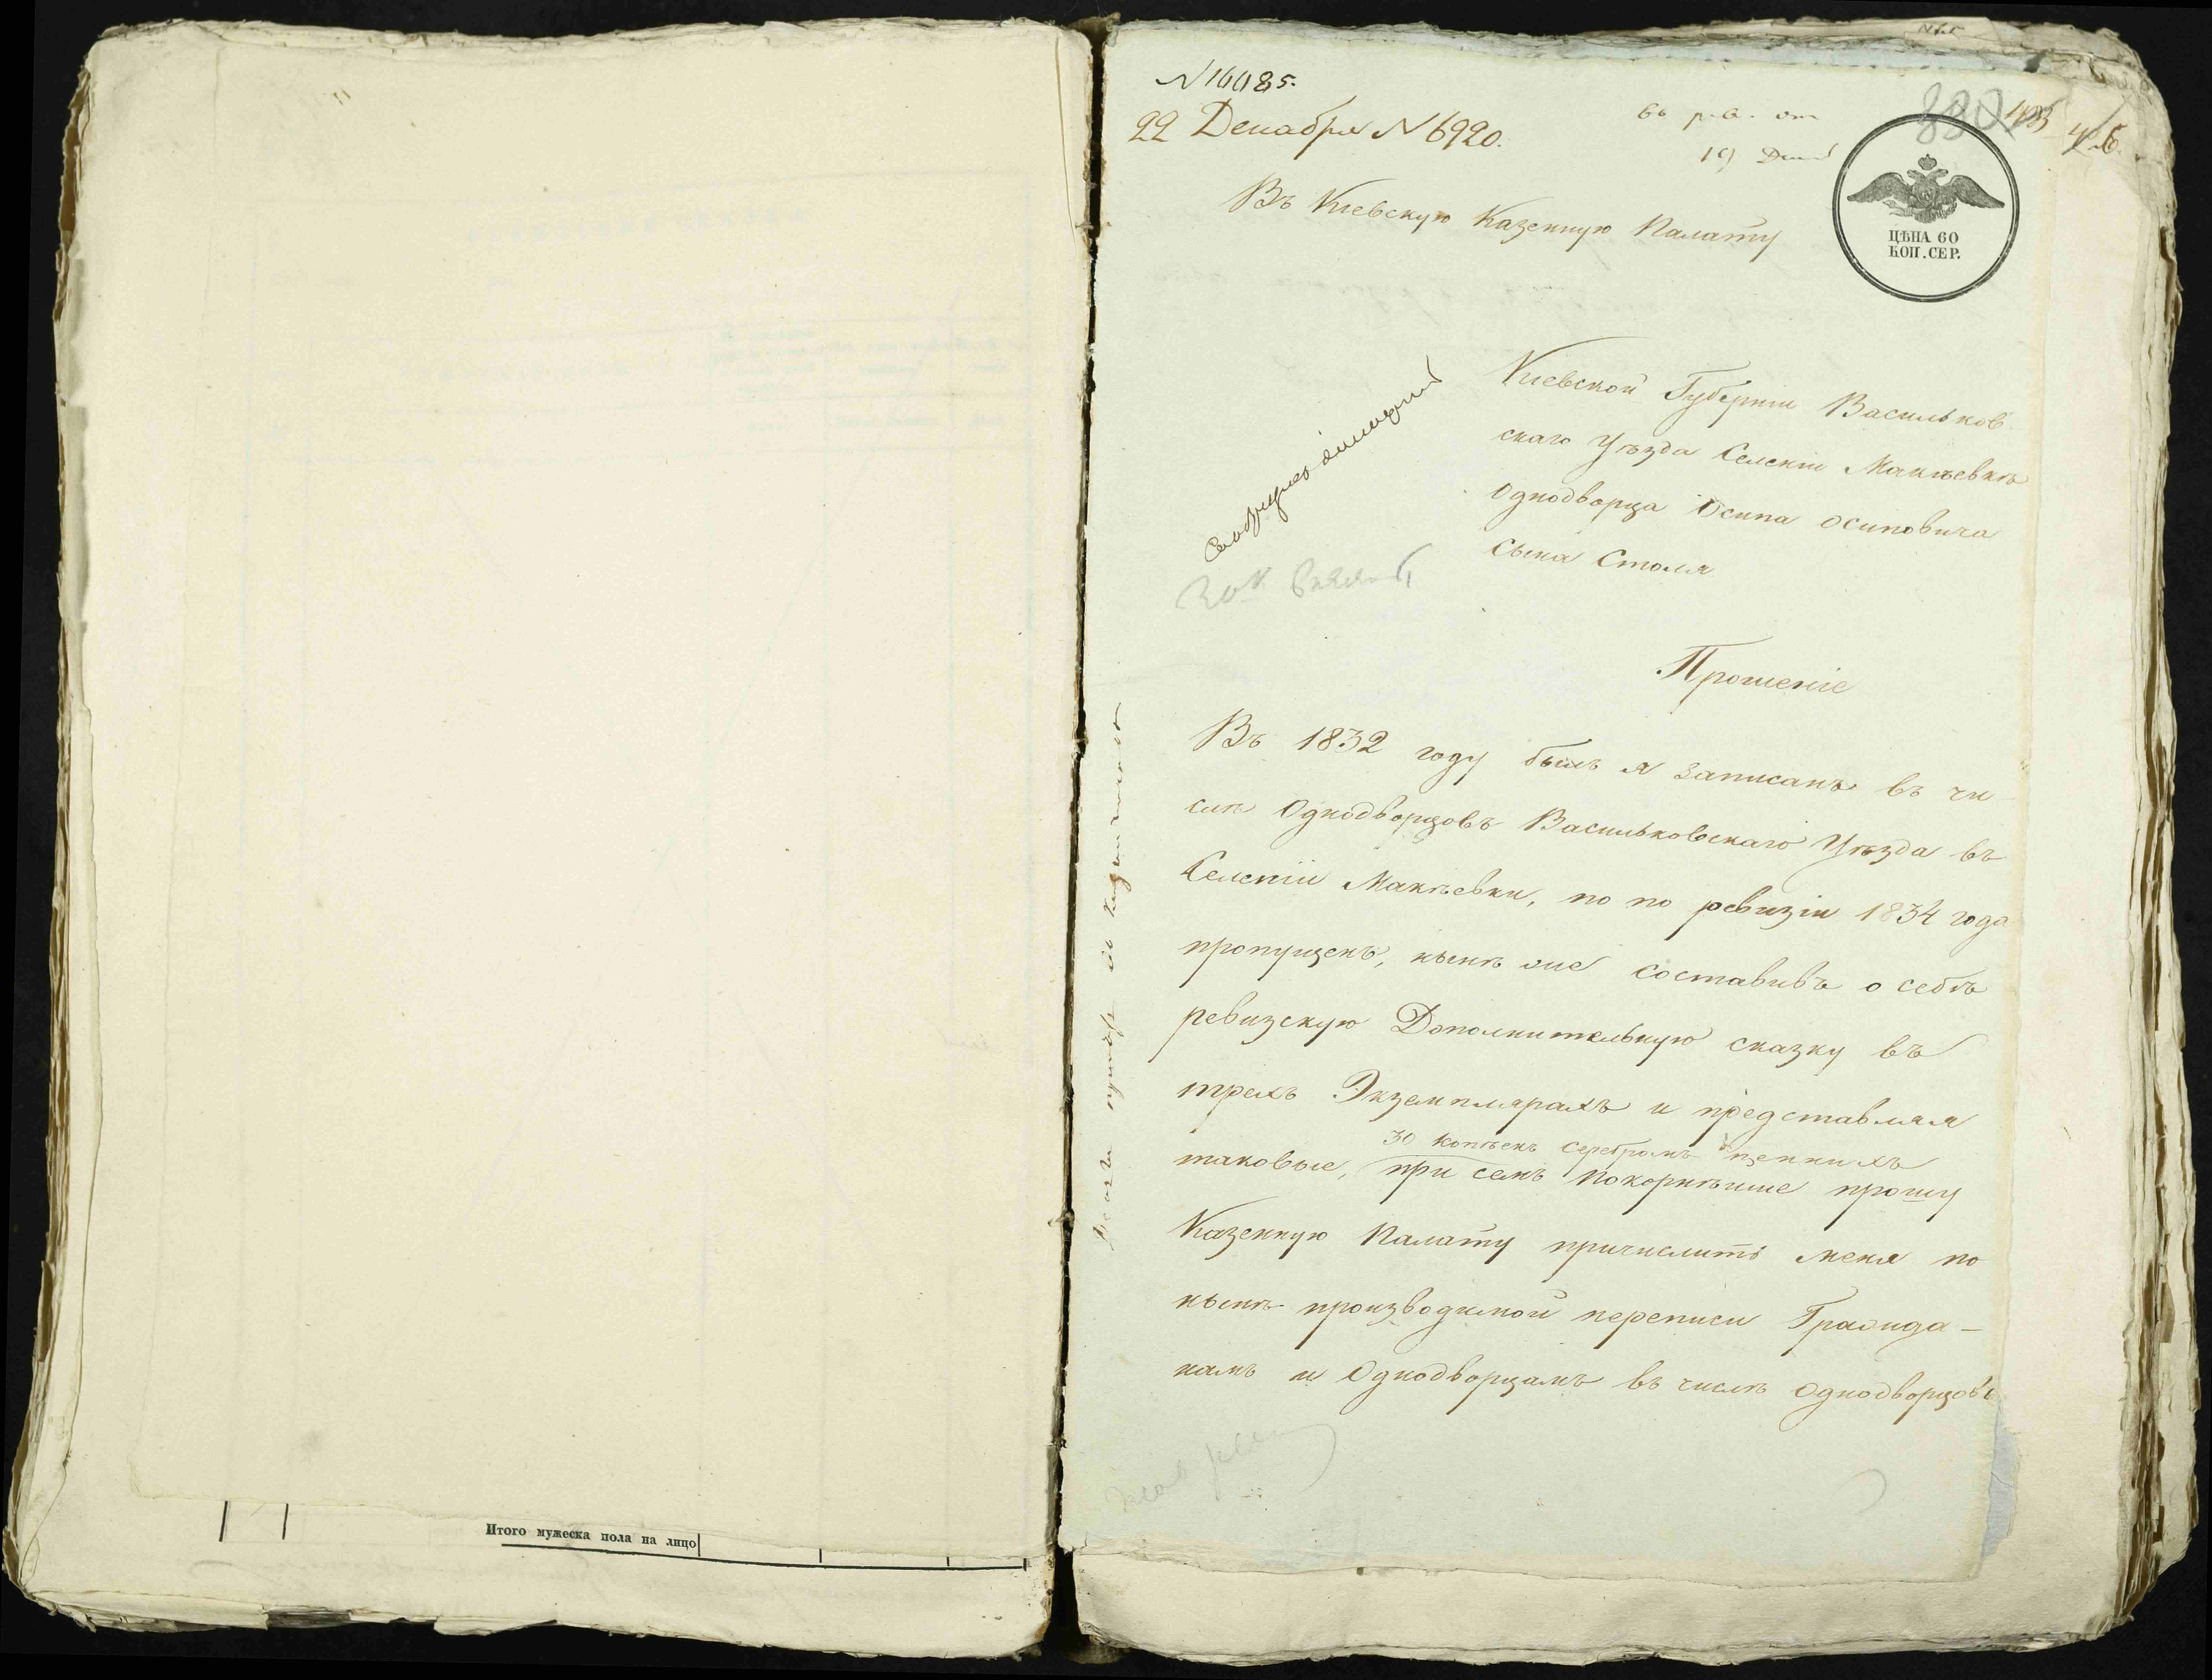 Итого мужеска пола на лицо
N 16085.
22 Декабря N 6920.
въ
19
ЦѢНА 60
КОП. СЕР.
Въ Кіевскую Казенную Палату
Кіевской Губерніи Васильков
скаго Уѣзда Селеніи Макѣевкѣ
Однодворца Осипа Осиповича
Сына Столя
Прошеніе
Въ 1832 году былъ я записанъ въ чи
слѣ Однодворцовъ Васильковскаго Уѣзда въ
Селеніи Макѣевки, но по ревизіи 1834 года
пропущенъ, нынѣ же составивъ о себѣ
ревизскую Дополнительную сказку въ
трехъ Экземплярахъ и представляя
30 копѣекъ серебромъ
таковые, при семъ покорнѣише прошу
Казенную Палату причислить меня по
нынѣ производимой переписи Гражда-
намъ и Однодворцамъ въ числѣ Однодворцовъ